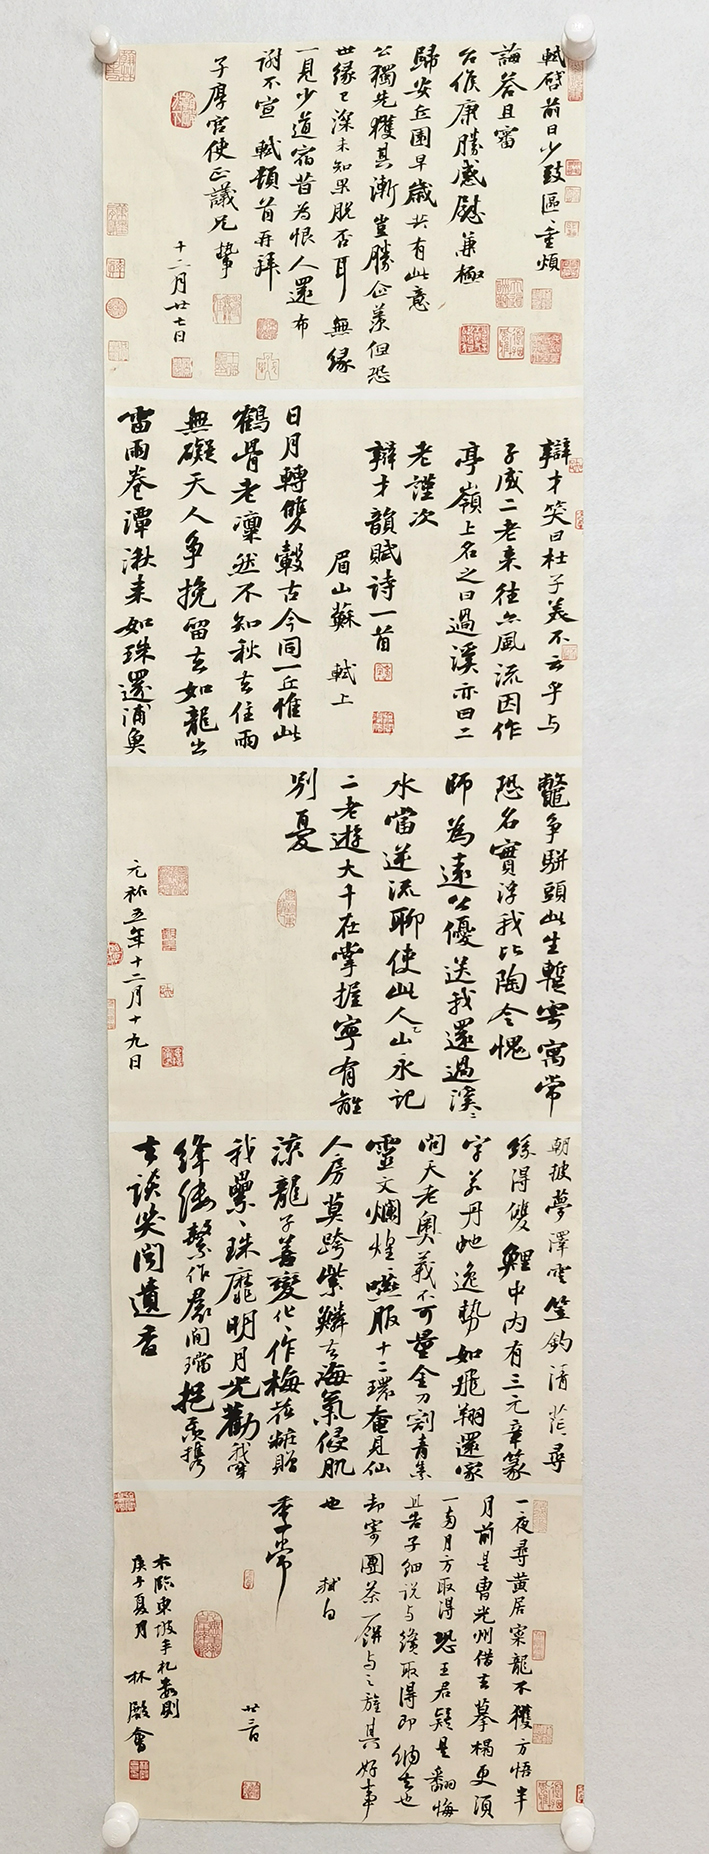 軾啓前日少致區區重煩
誨荅且審
台候康勝感慰兼極
歸安丘園早歲共有此意
公獨先獲其漸豈勝企羨但恐
世緣已深未知果脫否耳無緣
一見少道宿昔為恨人還布
謝不宣軾頓首再拜
子厚宮使正議兄執事
十二月廿七日
辯才笑曰杜子美不云乎與
子成二老來往亦風流因作
亭嶺上名之曰過溪亦曰二
老謹次
辯才韻賦詩一首
眉山蘇軾上
日月轉雙轂古今同一丘惟此
鶴骨老凜然不知秋去住兩
無礙天人爭挽留去如龍出
雷雨卷潭湫來如珠還浦魚
鼈爭駢頭此生暫寄寓常
恐名實浮我比陶令愧
師為遠公優送我還過溪溪
水當逆流聊使此人山永記
二老遊大千在掌握寧有離
別憂
元祐五年十二月十九日
朝披夢澤雲笠釣清茫茫尋
絲得雙鯉中內有三元章篆
字若丹虵逸勢如飛翔還家
問天老奧義不可量金刀割青素
靈文爛煌煌嚥服十二環奄見仙
人房莫跨紫鱗去海氣侵肌
涼龍子善變化化作梅花粧贈
我纍纍珠靡靡明月光勸我穿
絳縷繫作裙間璫挹子以攜
去談笑聞遺香
一夜尋黃居寀龍不獲方悟半
月前是曹光州借去摹榻更須
一兩月方取得恐王君疑是翻悔
且告子細說與纔取得即納去也
却寄團茶一餅與之旌其好事
也軾白
季常
廿三日
木臨東坡手札數則
庚子夏月林殿會